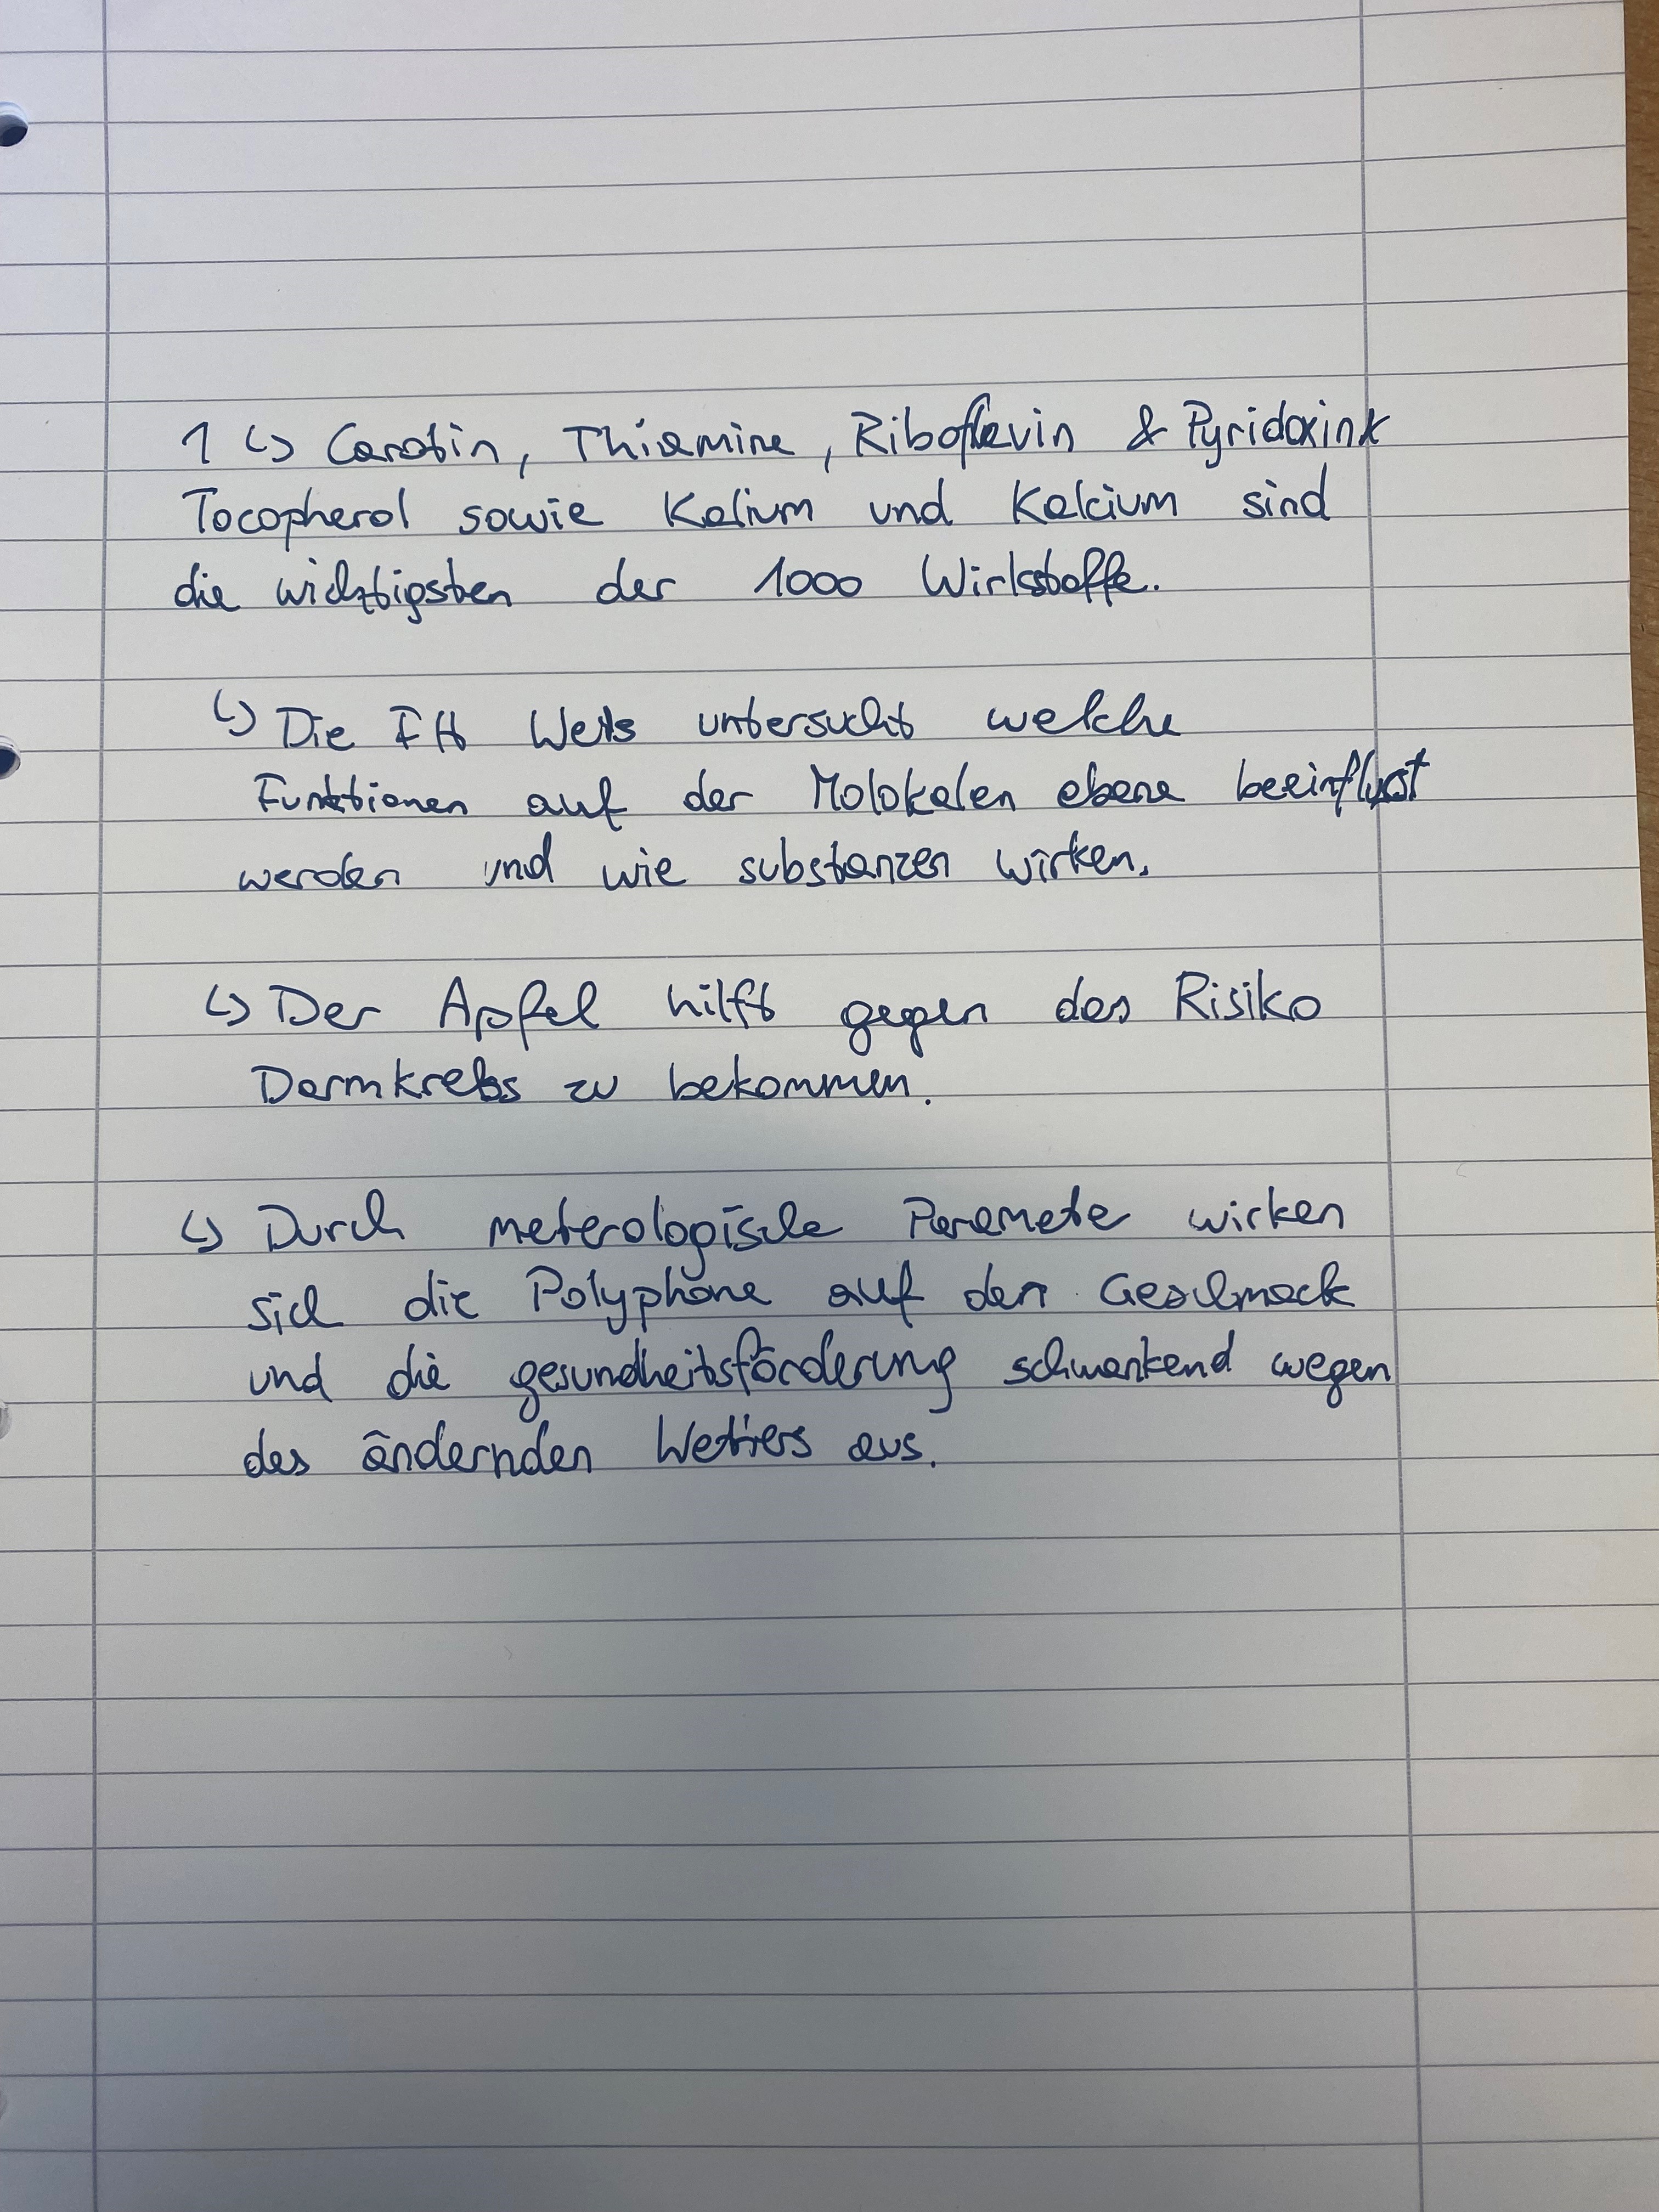 1 ↳ Carotin, Thiamine, Riboflavin & Pyridoxink
Tocopherol sowie Kalium und Kalcium sind
die wichtigsten der 1000 Wirkstoffe.
↳ Die FH Wels untersucht welche
Funktionen auf der Molokalen ebene beeinflusst
werden und wie substanzen wirken.
↳ Der Apfel hilft gegen das Risiko
Darmkrebs zu bekommen.
↳ Durch meterologische Paramete wirken
sich die Polyphone auf den Geschmack
und die gesundheitsförderung schwankend wegen
des ändernden Wetters aus.